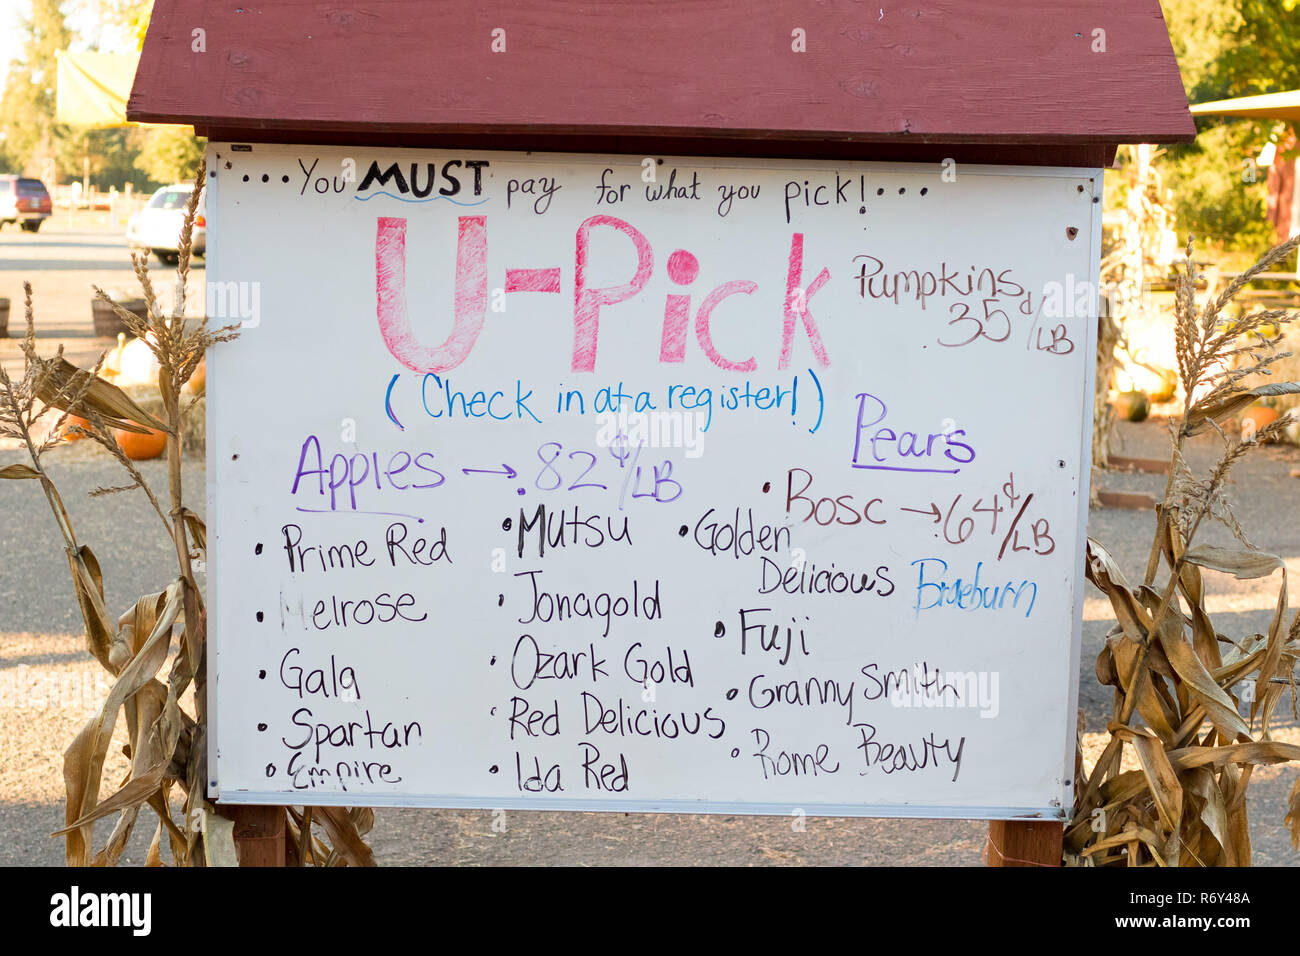 ...You MUST pay for what you pick!...
U-Pick
(Check in at a register!)
Pumpkins
.35¢/LB
Apples → .82¢/LB
• Prime Red
• Melrose
• Gala
• Spartan
• Empire
• Mutsu
• Jonagold
• Ozark Gold
• Red Delicious
• Ida Red
• Golden
Delicious
• Fuji
• Granny Smith
• Rome Beauty
Pears
• Bosc → .64¢/LB
Braeburn
alamy
alamy
Image ID: R6Y48A
www.alamy.com